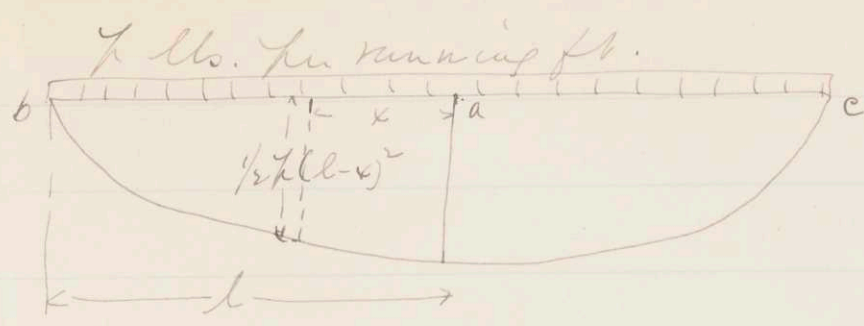 p lbs. per running ft.
b x a c
½p(l-x)²
l